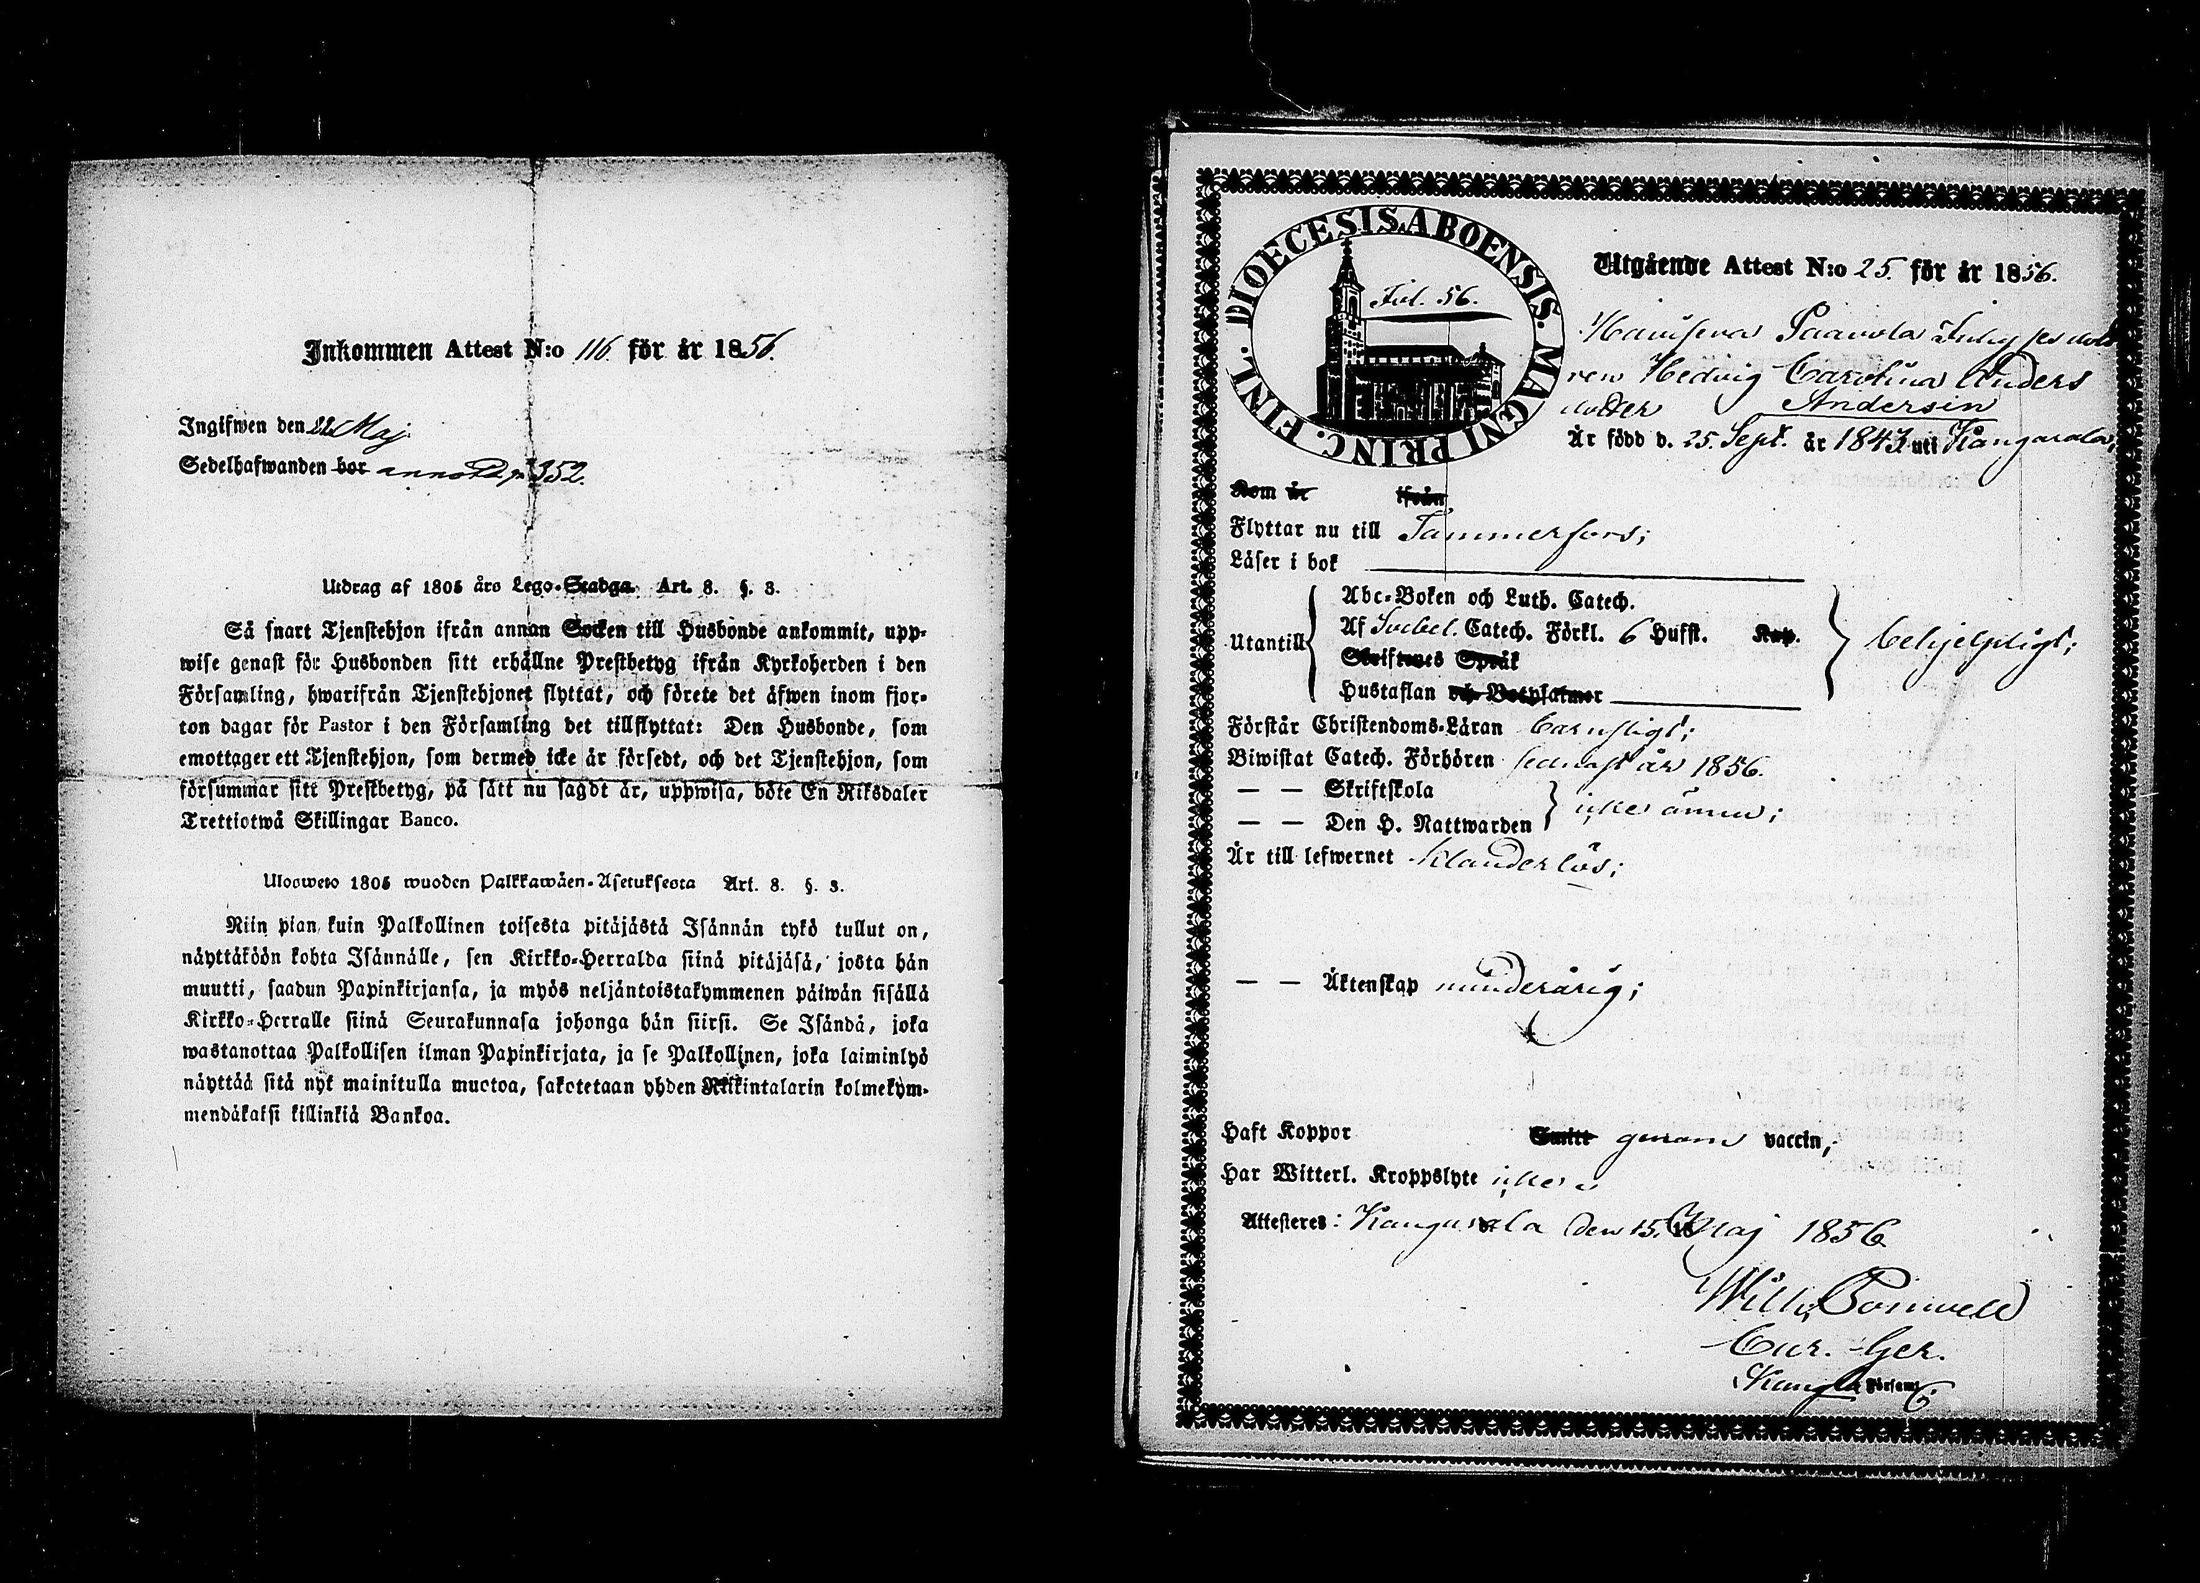 Inkommen Attest N:o 116. för år 1856.
Ingifwen den 22 Maj
Sedelhafwanden bor annoterd p. 352.
Utdrag af 1805 års Lego-Stadga. Art. 8. §. 3.
Så snart Tjenstehjon ifrån annan Socken till Husbonde ankommit, upp-
wise genast för Husbonden sitt erhållne Prestbetyg ifrån Kyrkoherden i den
Församling, hwarifrån Tjenstehjonet flyttat, och förete det äfwen inom fjor-
ton dagar för Pastor i den Församling det tillflyttat: Den Husbonde, som
emottager ett Tjenstehjon, som dermed icke är försedt, och det Tjenstehjon, som
försummar sitt Prestbetyg, på sätt nu sagdt är, uppwisa, böte En Riksdaler
Trettiotwå Skillingar Banco.
Ulosweto 1805 wuoden Palkkawäen-Asetuksesta Art. 8. §. 3.
Niin pian kuin Palkollinen toisesta pitäjästä Isännän tykö tullut on,
näyttäköön kohta Isännälle, sen Kirkko-Herralda siinä pitäjäsä, josta hän
muutti, saadun Papinkirjansa, ja myös neljäntoistakymmenen päiwän sisällä
Kirkko-Herralle siinä Seurakunnasa johonga hän siirsi. Se Isändä, joka
wastanottaa Palkollisen ilman Papinkirjata, ja se Palkollinen, joka laiminlyö
näyttää sitä nyt mainitulla muotoa, sakotetaan yhden Riikintalarin kolmekym-
mendäkaksi killinkiä Bankoa.
DIOECESIS ABOENSIS. MAGNI PRINC. FINL.
Fol. 56.
Utgående Attest N:o 25. för år 1856.
Paavola
ren Hedvig Carolina Anders
dotter Andersin
Är född d. 25. Sept. år 1843. uti Kangasala;
Kom år ifrån
Flyttar nu till Tammerfors;
Läser i bok
Utantill
Abc-Boken och Luth. Catech.
Af Svebel. Catech. Förkl. 6 Hufst. Kap.
Skriftenes Språk
Hustaflan och Botpsalmer
behjelpligt;
Förstår Christendoms-Läran barnsligt;
Biwistat Catech. Förhören sednast år 1856.
— — Skriftskola
— — Den H. Nattwarden
icke ännu;
Är till lefwernet klanderlös;
— — Äktenskap minderårig;
Haft Koppor Smitt genom vaccin;
Har Witterl. Kroppslyte icke
Attesteres: Kangasala den 15. Maj 1856.
Cur. Ger.
Kangla Församl.